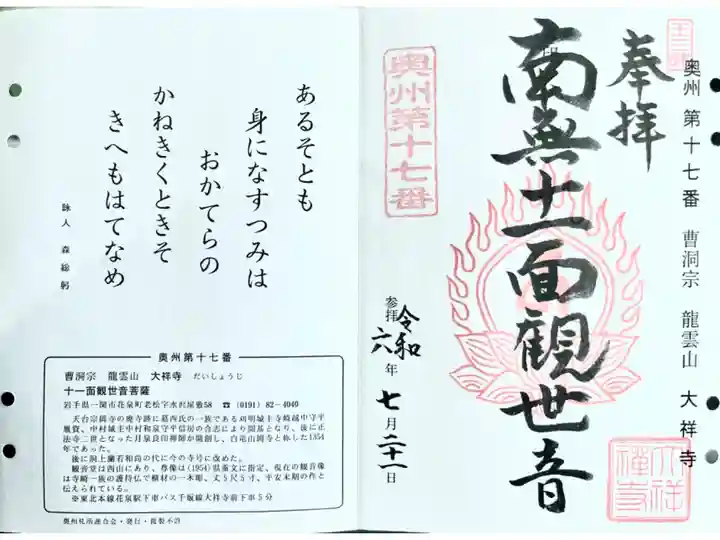 奥州 第十七番 曹洞宗 龍雲山 大祥寺
奉拝
南無十一面観世音
奥州第十七番
参拝 令和六年 七月二十一日
大祥禅寺
あるそとも
身になすつみは
おかてらの
かねきくときそ
きへもはてなめ
詠人 森 総躬
奥州第十七番
曹洞宗 龍雲山 大祥寺 だいしょうじ
十一面観世音菩薩
岩手県一関市花泉町老松字水沢屋敷58 ☎ (0191) 82-4040
天台宗岡寺の廃寺跡に葛西氏の一族である刈明城主寺崎越中守平
胤賀、中村城主中村和泉守平信房の合志により開基となり、後に正
法寺二世となった月泉良印禅師が開創し、白竜山岡寺と称した1354
年であった。
後に洞上蘭若和尚の代に今の寺号に改めた。
観音堂は西山にあり、尊像は(1954)県重文に指定、現在の観音像
は寺崎一族の護持仏で欅材の一木彫、丈5尺5寸、平安末期の作と
伝えられている。
※東北本線花泉駅下車バス千坂線大祥寺前下車5分
奥州札所連合会・発行・複製不許